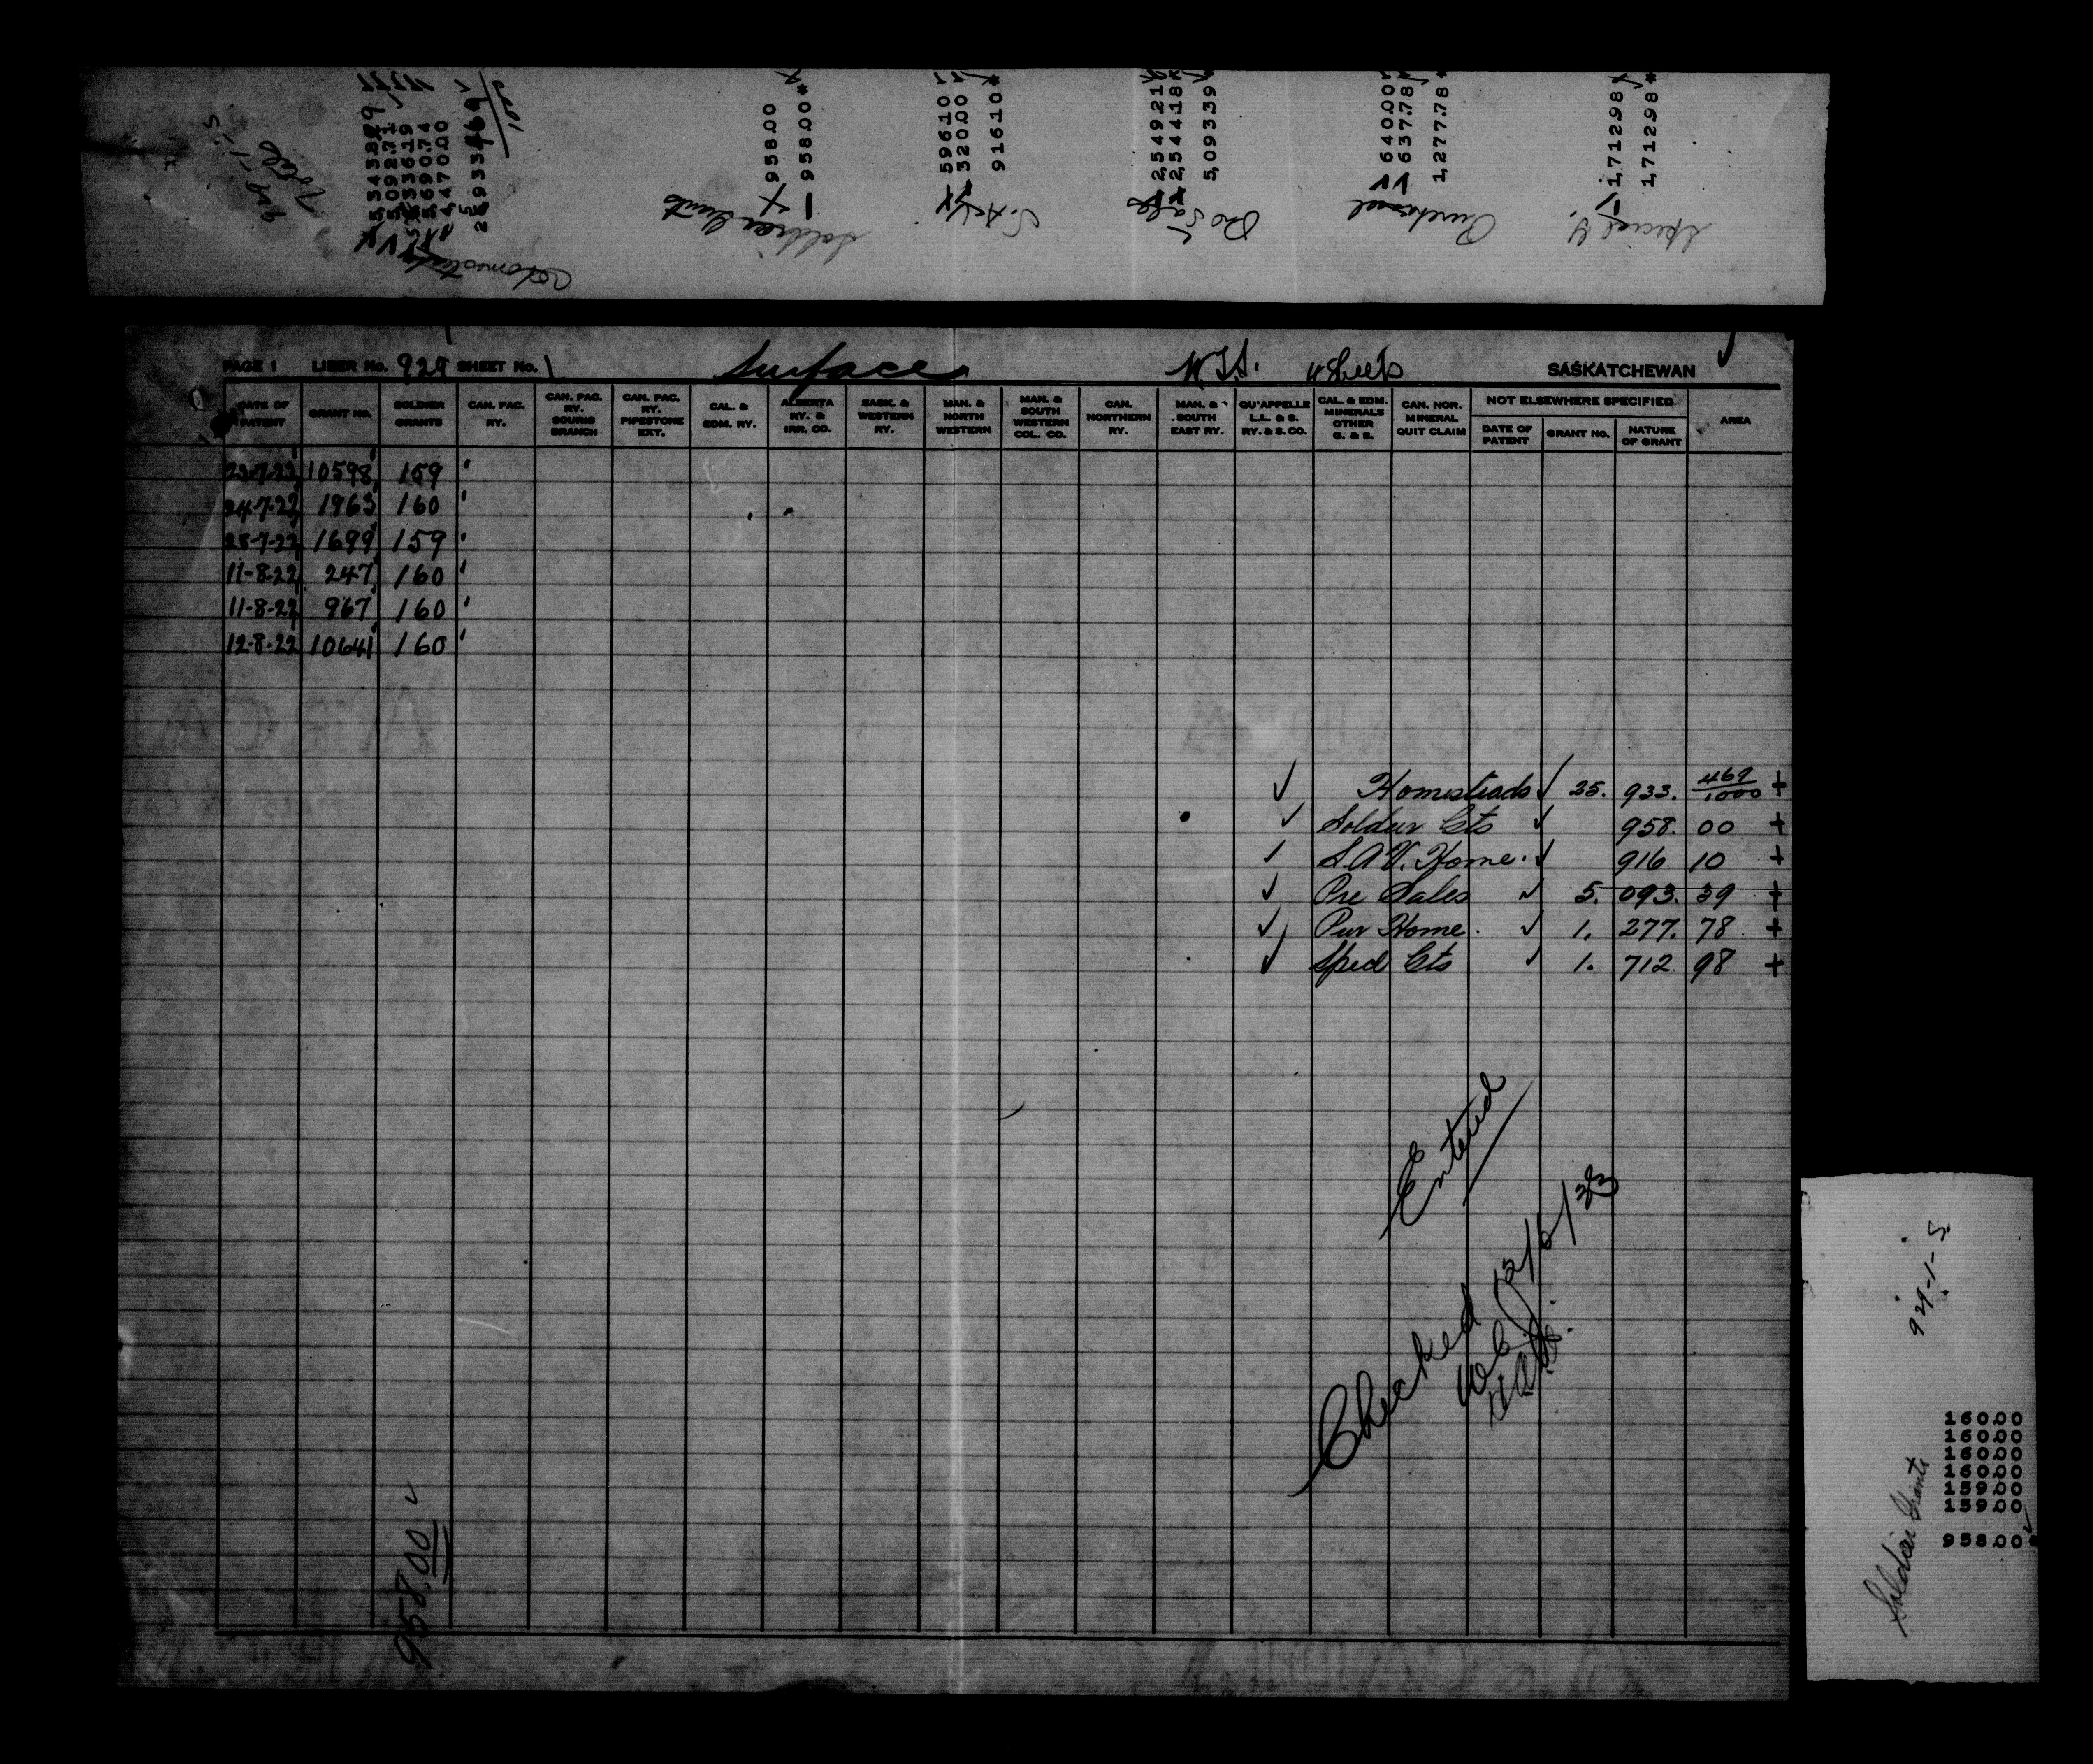 929-1-5
Totals
5343.829
5092.71
5336.19
5690.74
4470.00
25933.469
1000
Homesteads
958.00
958.00*
Soldier Grants
596.10
320.00
916.10*
2,549.21
2,544.18
5,093.39
Pre Sales
640.00
637.78
1,277.78*
Purchased
1,712.98
1,712.98*
Special G.
PAGE 1 LIBER No. 929 SHEET No. 1 Surface SASKATCHEWAN
DATE OF PATENT
GRANT NO.
SOLDIER GRANTS
CAN. PAC. RY.
CAN. PAC. RY. SOURIS BRANCH
CAN. PAC. RY. PIPESTONE EXT.
CAL. & EDM. RY.
ALBERTA RY. & IRR. CO.
SASK. & WESTERN RY.
MAN. & NORTH WESTERN
MAN. & SOUTH WESTERN COL. CO.
CAN. NORTHERN RY.
MAN. & SOUTH EAST RY.
QU'APPELLE L.L. & S. RY. & S. CO.
CAL. & EDM. MINERALS OTHER G. & S.
CAN. NOR. MINERAL QUIT CLAIM
NOT ELSEWHERE SPECIFIED
DATE OF PATENT
GRANT NO.
NATURE OF GRANT
AREA
10598 159
24-7-22 1963 160
28-7-22 1699 159
11-8-22 247 160
11-8-22 967 160
12-8-22 10641 160
Homesteads 25. 933. 469/1000 +
Soldier Gts 958. 00 +
S.A.V. Home. 916 10 +
Pre Sales 5. 093. 39 +
Pur Home. 1. 277. 78 +
Sped Gts 1. 712 98 +
Entered
Checked 12/6/33
958.00
929-1-5
Soldier Grants
160.00
160.00
160.00
160.00
159.00
159.00
958.00*